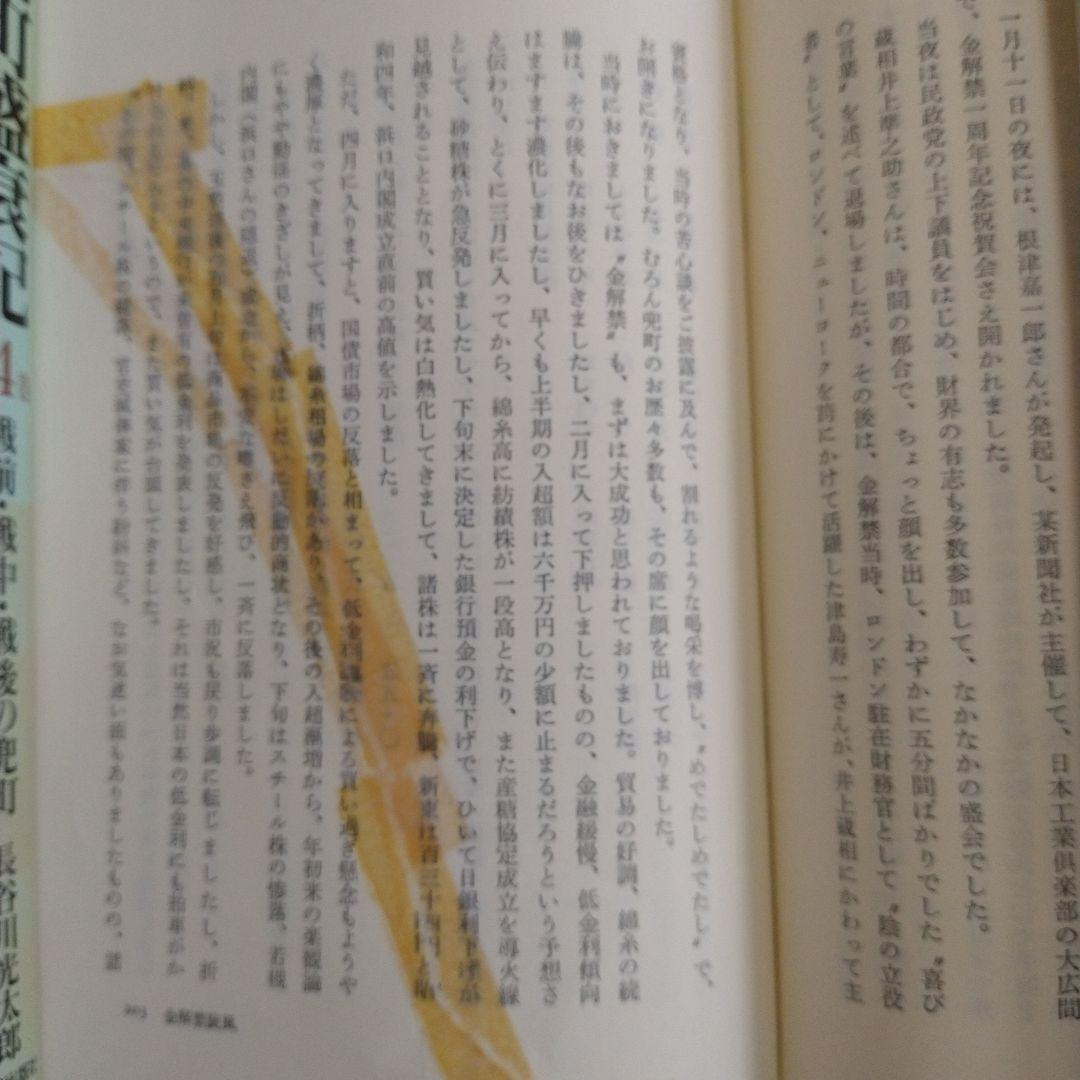 一月十一日の夜には、根津嘉一郎さんが発起し、某新聞社が主催して、日本工業倶楽部の大広間
で、金解禁一周年記念祝賀会さえ開かれました。
当夜は民政党の上下議員をはじめ、財界の有志も多数参加して、なかなかの盛会でした。
蔵相井上準之助さんは、時間の都合で、ちょっと顔を出し、わずかに五分間ばかりでした〝喜び
の言葉〟を述べて退場しましたが、その後は、金解禁当時、ロンドン駐在財務官として〝陰の立役
者〟として、ロンドン、ニューヨークを跨にかけて活躍した津島寿一さんが、井上蔵相にかわって主
賓格となり、当時の苦心談をご披露に及んで、割れるような喝采を博し、〝めでたしめでたし〟で、
お開きになりました。むろん兜町のお歴々多数も、その席に顔を出しておりました。
当時におきましては〝金解禁〟も、まずは大成功と思われておりました。貿易の好調、綿糸の続
騰は、その後もなお後をひきましたし、二月に入って下押しましたものの、金融緩慢、低金利傾向
はますます濃化しましたし、早くも上半期の入超額は六千万円の少額に止まるだろうという予想さ
え伝わり、とくに三月に入ってから、綿糸高に紡績株が一段高となり、また産糖協定成立を導火線
として、砂糖株が急反発しましたし、下旬末に決定した銀行預金の利下げで、ひいて日銀利下げが
見越されることとなり、買い気は白熱化してきまして、諸株は一斉に奔騰、新東は百三十四円と昭
和四年、浜口内閣成立直前の高値を示しました。
ただ、四月に入りますと、国債市場の反落と相まって、低金利
による買い過ぎ懸念もようや
く濃厚となってきまして、折柄、綿糸相場の反落があり、その後の入超漸増から、年初来の楽観論
にもやや動揺のきざしが見え、
はしだいに反動的商状となり、下旬はスチール株の惨落、若槻
内閣（浜口さんの
さえ飛び、一斉に反落しました。
上旬
商品市場の反発を好感し、市況も戻り歩調に転じましたし、折
の低金利を発表しましたし、それは当然日本の低金利にも拍車がか
ので、また買い気が台頭してきました。
官吏減俸案に伴う紛糾など、なお気迷い面もありましたものの、諸
203 金解禁
4
戦前・戦中・戦後の兜町 長谷川光太郎